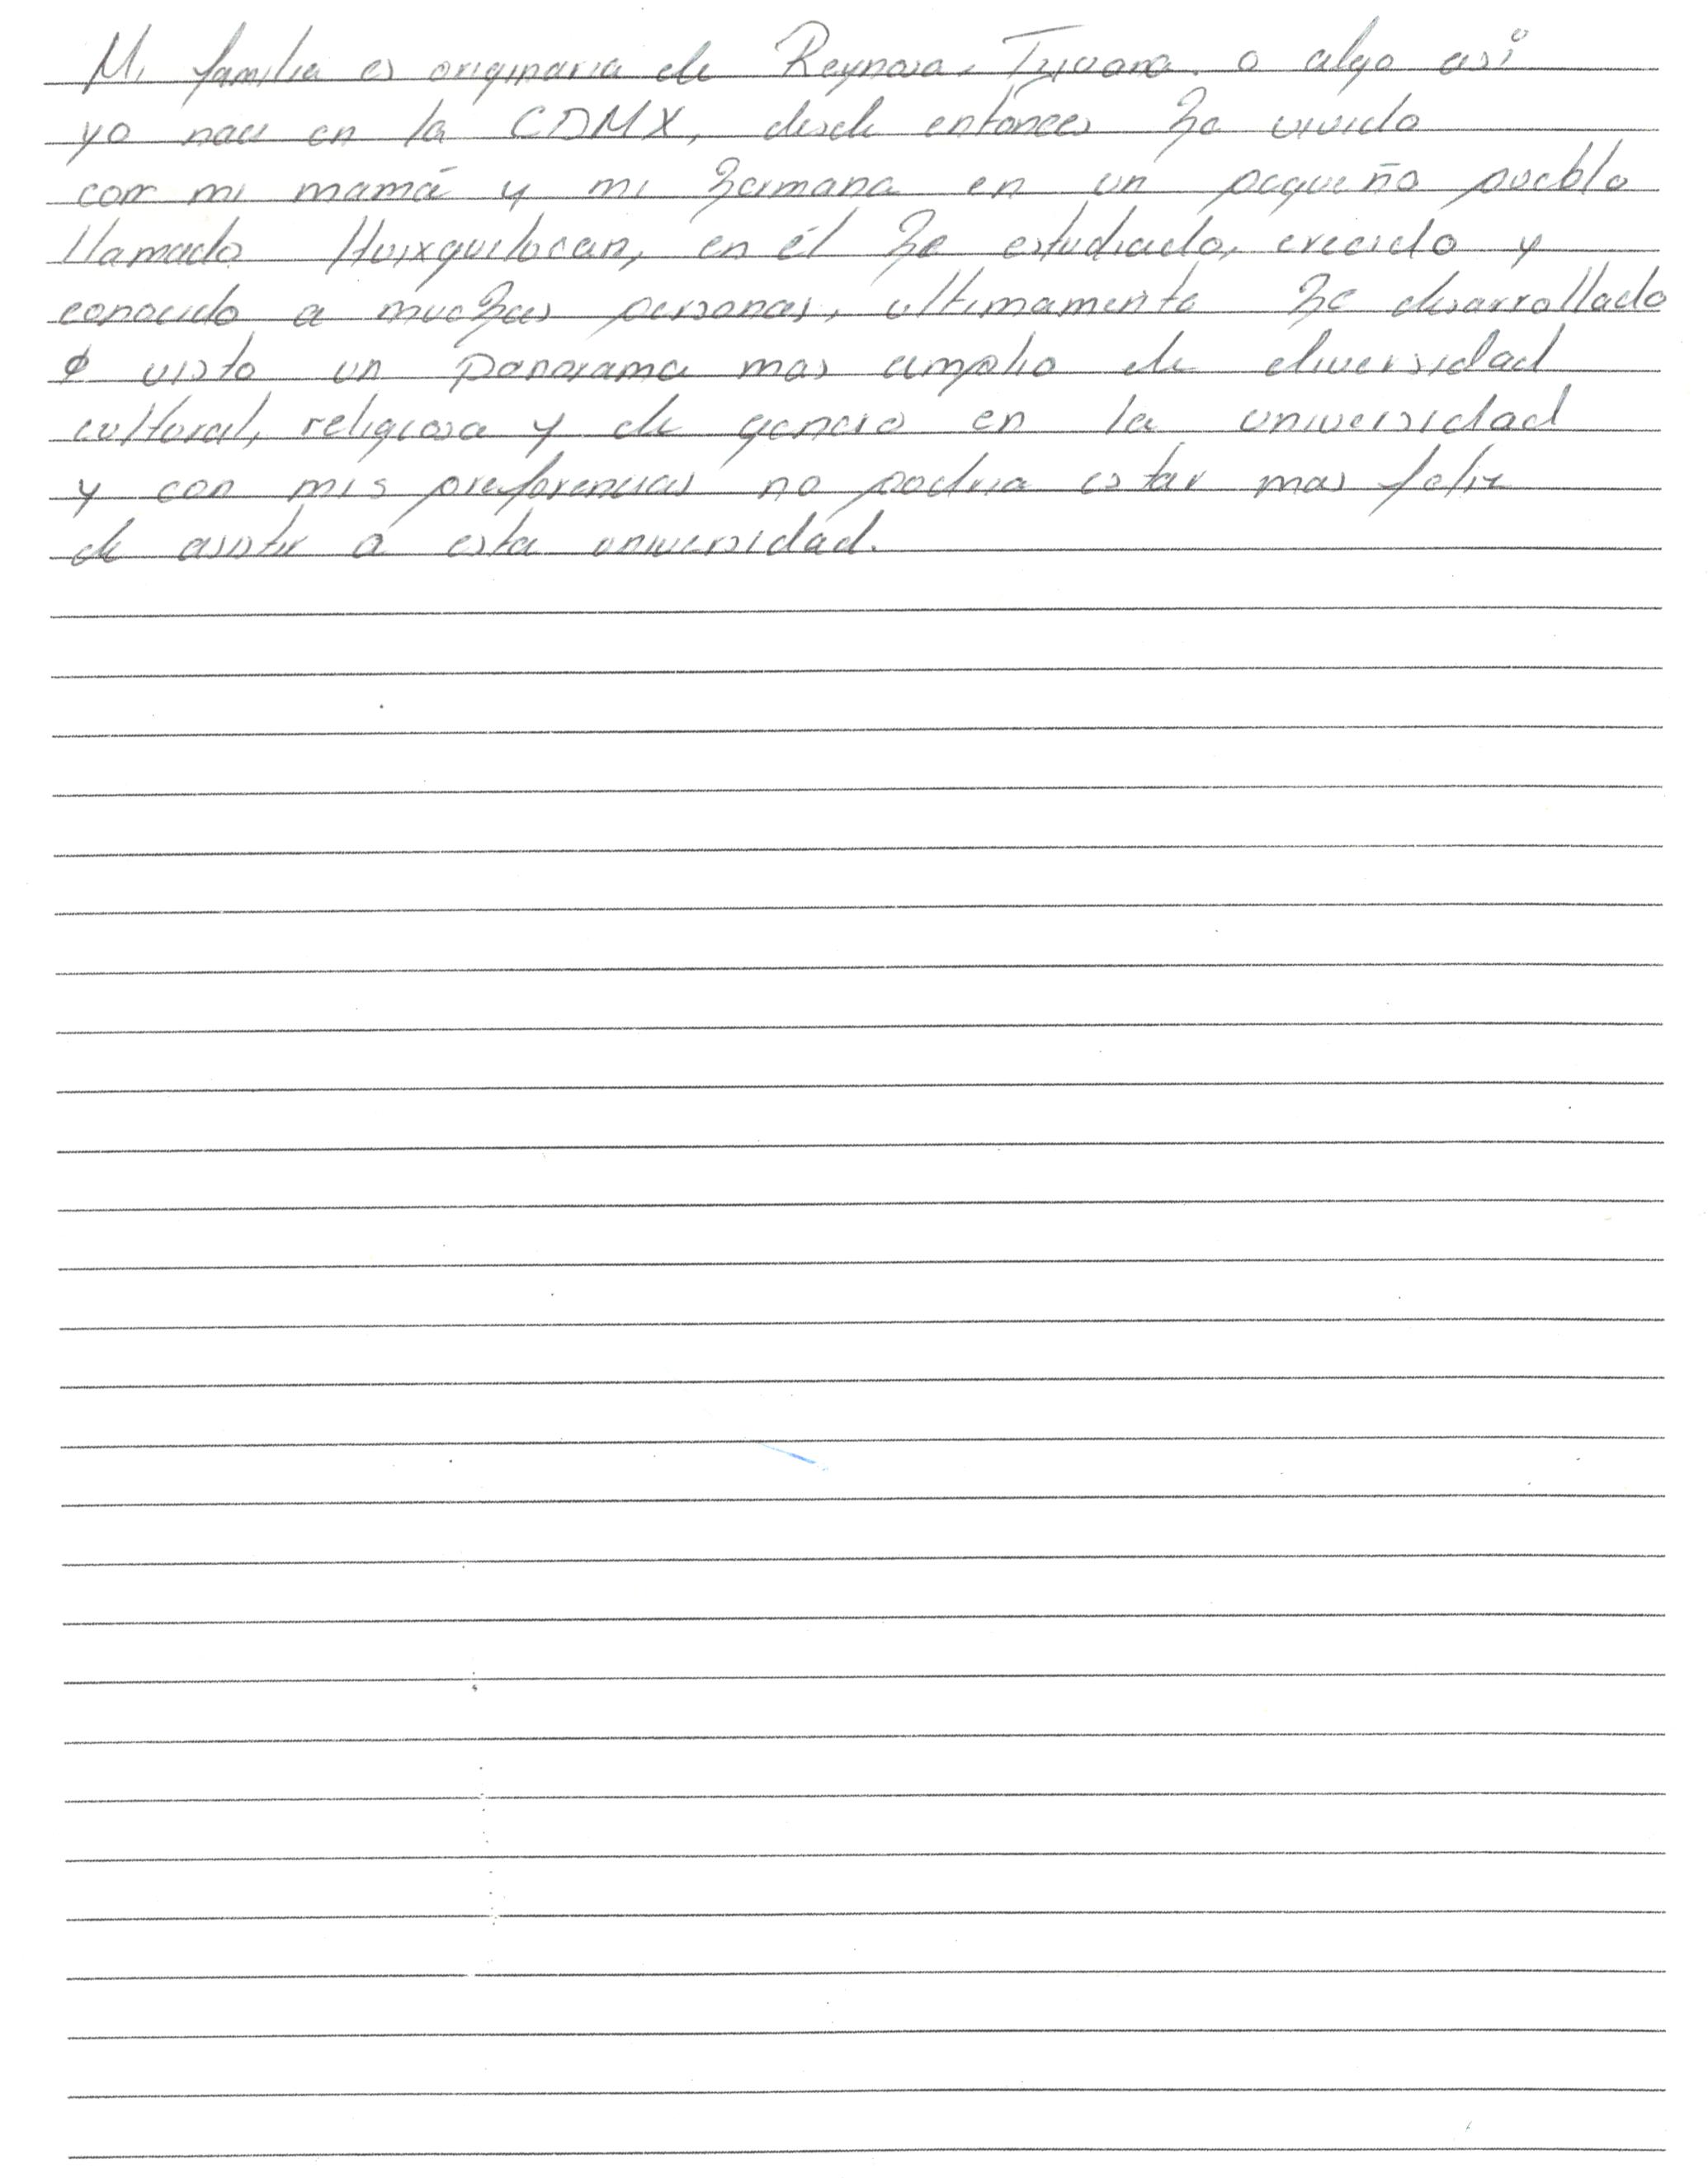 Mi familia es originaria de Reynosa, Tijuana. o algo así
yo naci en la CDMX, desde entonces he vivido
con mi mamá y mi hermana en un pequeño pueblo
llamado Huixquilocan, en él he estudiado, crecido y
conocido a muchas personas, ultimamente he desarrollado
visto un panorama mas amplio de diversidad
cultural, religiosa y de genero en la universidad
y con mis preferencias no podria estar mas feliz
de asistir a esta universidad.